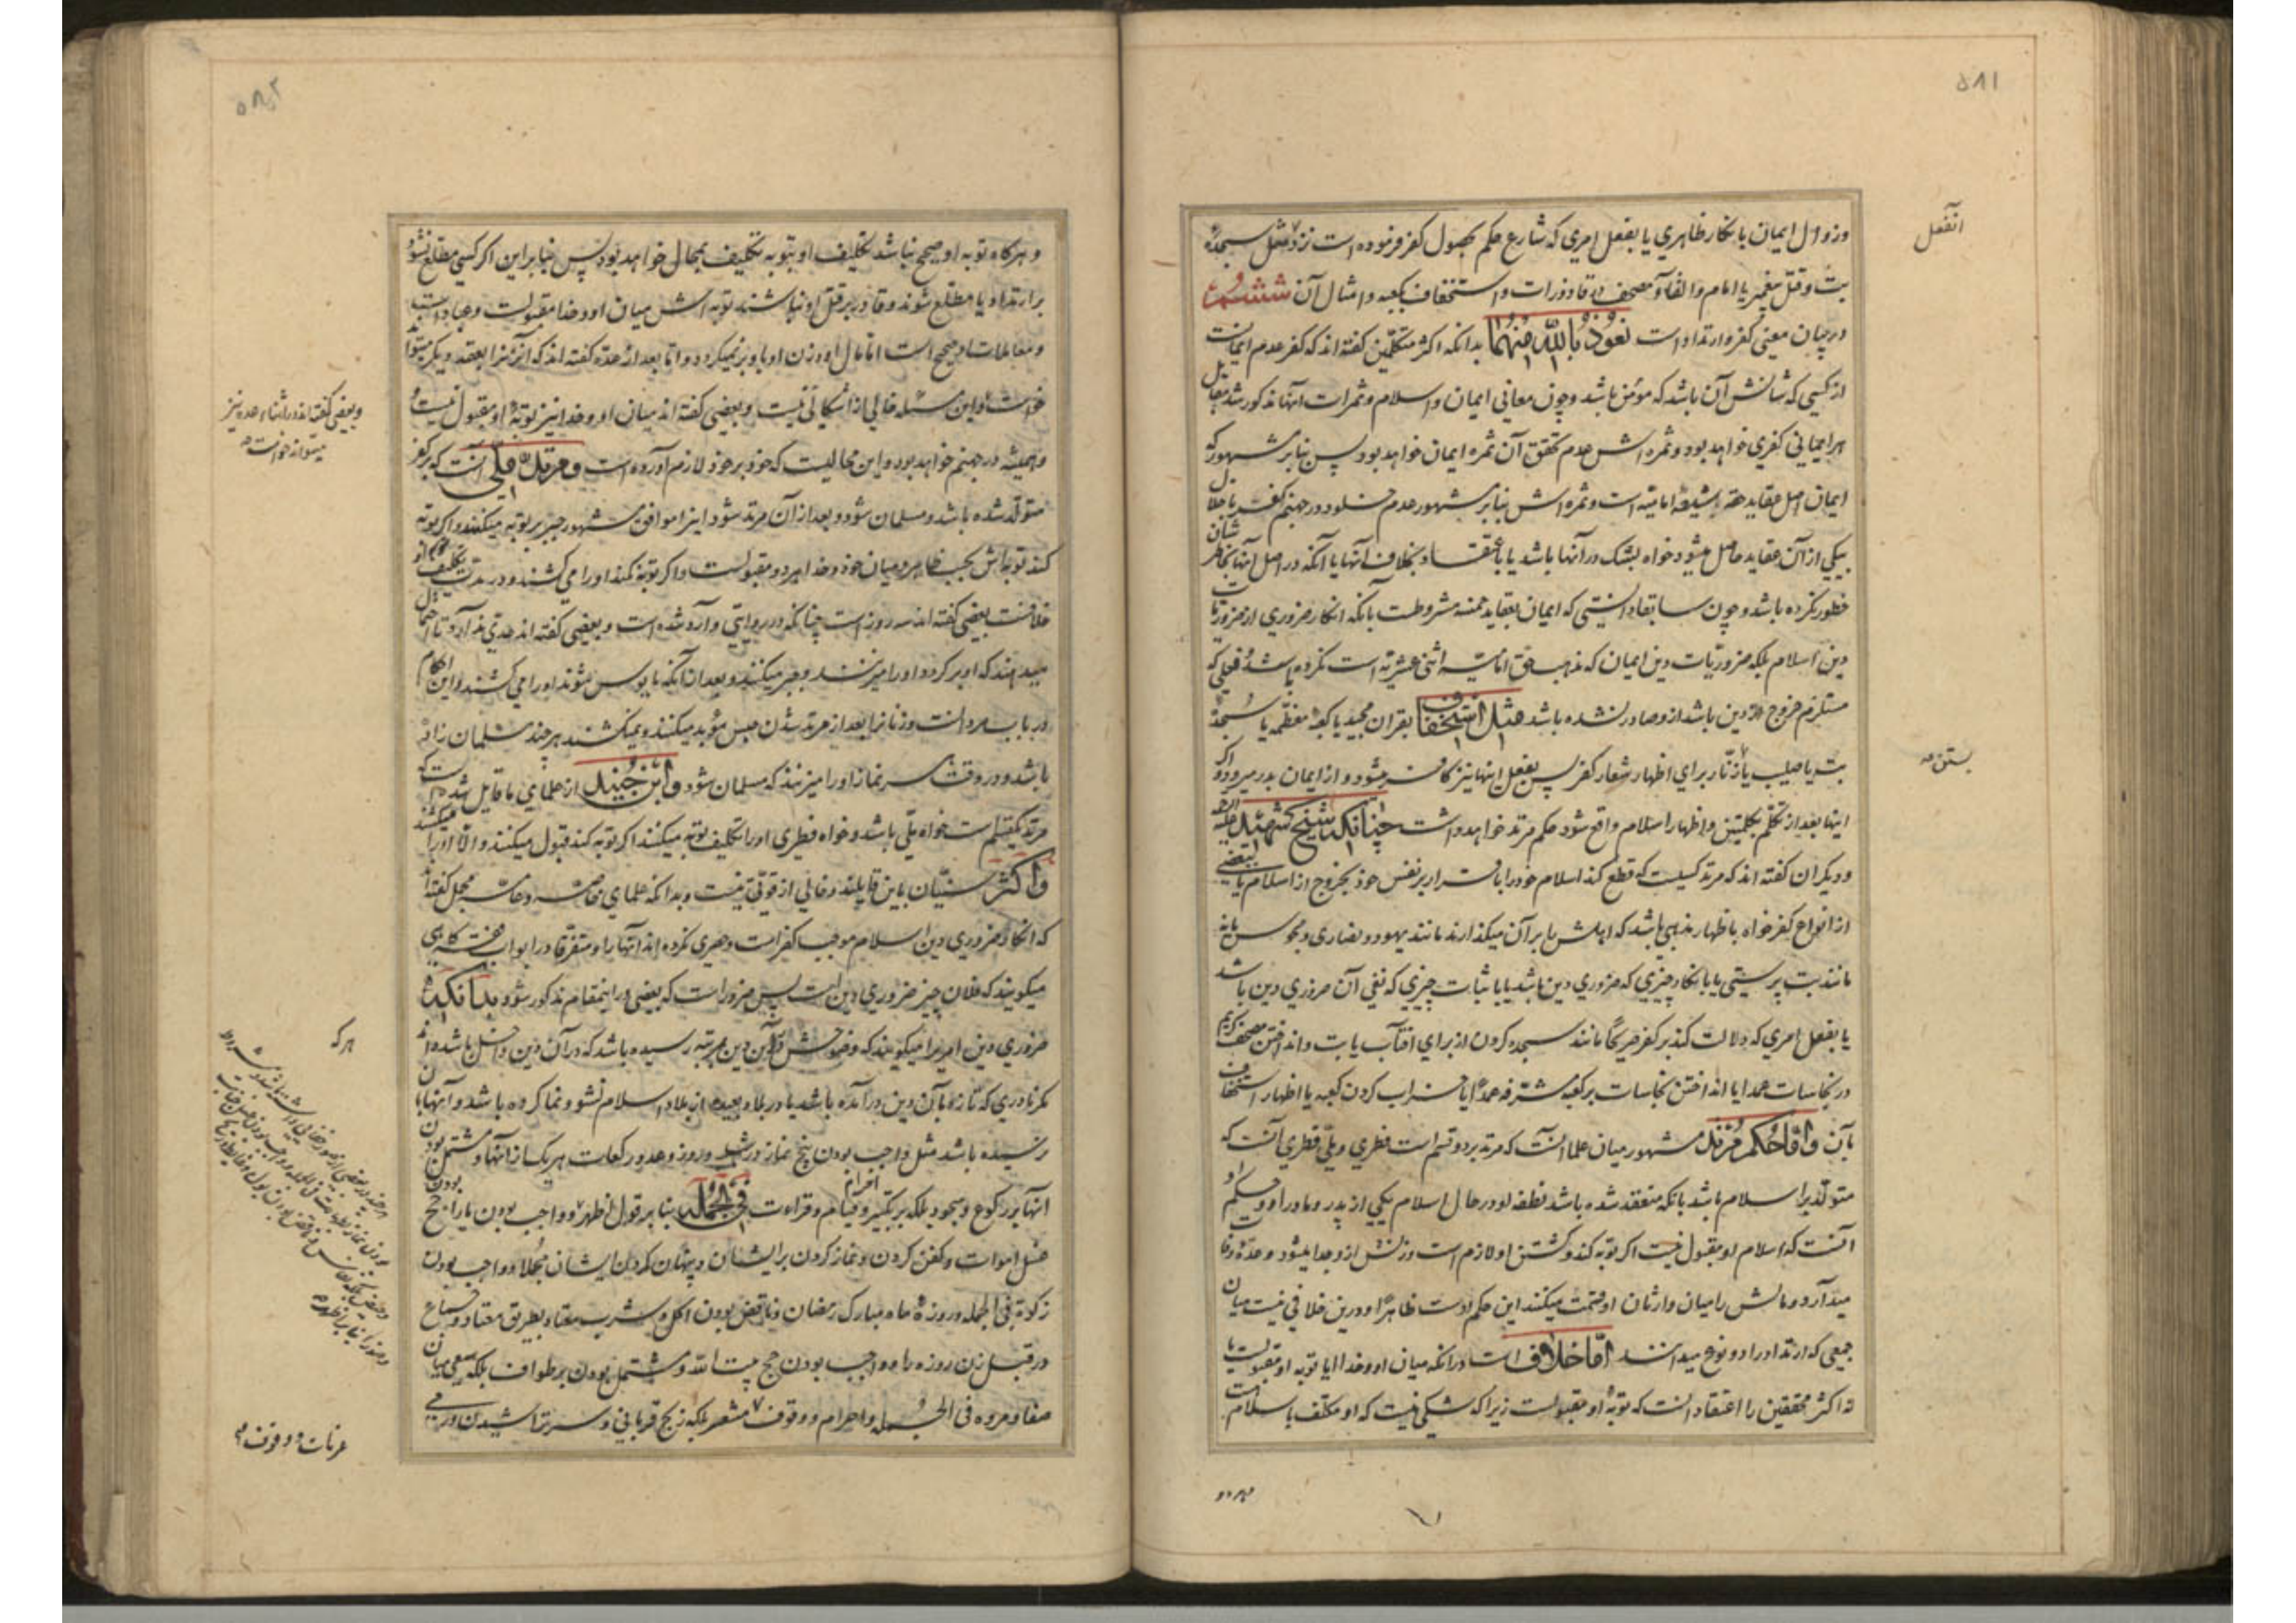 ۵۸۱
و زوال ایمان یا بانکار ظاهری یا بفعل امری که شارع حکم بحصول کفر فرموده است نزد مثل سجدهٔ
بت و قتل پیغمبر یا امام و القاء مصحف در قاذورات و استخفاف بکعبه و امثال آن ششم
در بیان معنی کفر و ارتداد است نعوذ بالله منهما بدانکه اکثر متکلمین گفته اند که کفر عدم ایمانست
از کسی که شانش آن باشد که مؤمن باشد و چون معانی ایمان و اسلام و ثمرات آنها مذکور شد مقابل
هر ایمانی کفری خواهد بود و ثمره اش عدم تحقق آن ثمره ایمان خواهد بود پس بنا بر مشهور که
ایمان اصل عقاید حقه شیعهٔ امامیه است و ثمره اش بنا بر مشهور عدم خلود در جهنم کفر باخلال
بیکی از آن عقاید حاصل میشود خواه بشک در آنها باشد یا باعتقاد بخلاف آنها یا آنکه در اصل آنها بخاطرشان
خطور نکرده باشد و چون سابقا دانستی که ایمان بعقاید خمسه مشروطست بآنکه انکار ضروری از ضروریات
دین اسلام بلکه ضروریات دین ایمان که مذهب حق امامیه اثنی عشریه است نکرده باشد و فعلی که
مستلزم خروج از دین باشد از و صادر نشده باشد مثل استخفاف بقران مجید یا کعبهٔ معظمه یا سجدهٔ
بت یا صلیب یا زنار برای اظهار شعار کفر پس بفعل اینها نیز کافر میشود و از ایمان بدر میرود و اگر
اینها بعد از تکلم بکلمتین و اظهار اسلام واقع شود حکم مرتد خواهد داشت چنانکه شیخ شهید علیه الرحمه
و دیگران گفته اند که مرتد کسیست که قطع کند اسلام خود را باقرار بر نفس خود بخروج از اسلام یا ببعضی
از انواع کفر خواه باظهار مذهبی باشد که اهلش را بر آن میگذارند مانند یهود و نصاری و مجوس یا نه
مانند بت پرستی یا بانکار چیزی که ضروری دین باشد یا باثبات چیزی که نفی آن ضروری دین باشد
یا بفعل امری که دلالت کند بر کفر صریحًا مانند سجده کردن از برای افتاب یا بت و انداختن مصحف کریم
در نجاسات عمدا یا انداختن نجاسات بر کعبه مشرفه عمدًا یا خراب کردن کعبه یا اظهار استخفاف
بآن و اما حکم مرتد مشهور میان علما آنست که مرتد بر دو قسم است فطری و ملی فطری آنست که
متولد بر اسلام باشد بآنکه منعقد شده باشد نطفه او در حال اسلام یکی از پدر و مادر او و حکم او
آنست که اسلام او مقبول نیست اگر توبه کند و کشتن او لازم است و زنش از و جدا میشود و عدّه وفات
میدارد و مالش را میان وارثان او قسمت میکنند این حکم اوست ظاهرًا و درین خلافی نیست میان
جمعی که ارتداد را دو نوع میدانند اما خلاف است در آنکه میان او و خدا ایا توبه او مقبولست یا
نه اکثر محققین را اعتقاد آنست که توبهٔ او مقبولست زیرا که شکی نیست که او مکلف باسلام است
۵۸۲
و هرگاه توبه او صحیح نباشد تکلیف او بتوبه تکلیف بمحال خواهد بود پس بنابراین اگر کسی مطلع نشود
بر ارتداد یا مطلع شوند و قادر بر قتل او نباشند توبه اش میان او و خدا مقبولست و عباداتش
و معاملات او صحیح است اما مال او و زن او باو برنمیگردد و اما بعد از عدّه گفته اند که آنزنرا بعقد دیگر میتواند
خواست و این مسئله خالی از اشکالی نیست و بعضی گفته اند میان او و خدا نیز توبهٔ او مقبول نیست
و همیشه در جهنم خواهد بود و این محالیست که خود بر خود لازم آورده است و مرتد ملی آنست که بر کفر
متولد شده باشد و مسلمان شود و بعد از آن مرتد شود اینرا موافق مشهور جبر بر توبه میکنند و اگر توبه
کند توبه اش بحسب ظاهر و میان خود و خدا هر دو مقبولست و اگر توبه نکند او را می کشند و در مدت تکلیف توبهٔ او
خلافست بعضی گفته اند سه روز است چنانکه در روایتی وارد شده است و بعضی گفته اند مدتی ندارد تا احتمال
میدهند که او برگردد او را میزنند و جبر میکنند و بعد از آنکه مایوس شوند او را می کشند و این احکام
در باب مرد است و زنانرا بعد از مرتد شدن حبس مؤبد میکنند و نمیکشند هر چند مسلمان زاده
باشد و در وقت هر نماز او را میزنند که مسلمان شود و ابن جنید از علمای ما قایل شده است که
مرتد یکقسم است خواه ملی باشد و خواه فطری او را تکلیف توبه میکنند اگر توبه کند قبول میکنند و الا او را میکشند
و اکثر سنیان باین قایلند و خالی از قوتی نیست و بدانکه علمای خاصه و عامه مجمل گفته اند
که انکار ضروری دین اسلام موجب کفر است و حصری نکرده اند آنها را و متفرقا در ابواب فقه گاهی
میگویند که فلان چیز ضروری دین است پس ضرور است که بعضی در اینمقام مذکور شود بدانکه
ضروری دین امریرا میگویند که وضوحش در آن دین بمرتبه رسیده باشد که در آن دین داخل باشد داند
مگر نادری که تازه بآن دین درآمده باشد یا در بلاد بعیده از بلاد اسلام نشو و نما کرده باشد و آنها باو
نرسیده باشد مثل واجب بودن پنج نماز در شبانه روز و عدد رکعات هر یک از آنها و مشتمل بودن
آنها بر رکوع و سجود بلکه بر تکبیر احرام و قیام و قراءت فی الجمله بنا بر قول اظهر و واجب بودن یا راجح بودن
غسل اموات و کفن کردن و نماز کردن بر ایشان و پنهان کردن ایشان مجملا و واجب بودن
زکوة فی الجمله و روزهٔ ماه مبارک رمضان و ناقض بودن اکل و شرب معتاد بطریق معتاد و جماع
در قبل زن روزه را و واجب بودن حج بیت الله و مشتمل بودن بر طواف بلکه سعی میان
صفا و مروه فی الجمله و احرام و وقوف مشعر بلکه ذبح قربانی و سر تراشیدن و رمی
و بعضی گفته اند در اثناء عده نیز
میتواند خواست
هر که
عرفات و وقوف